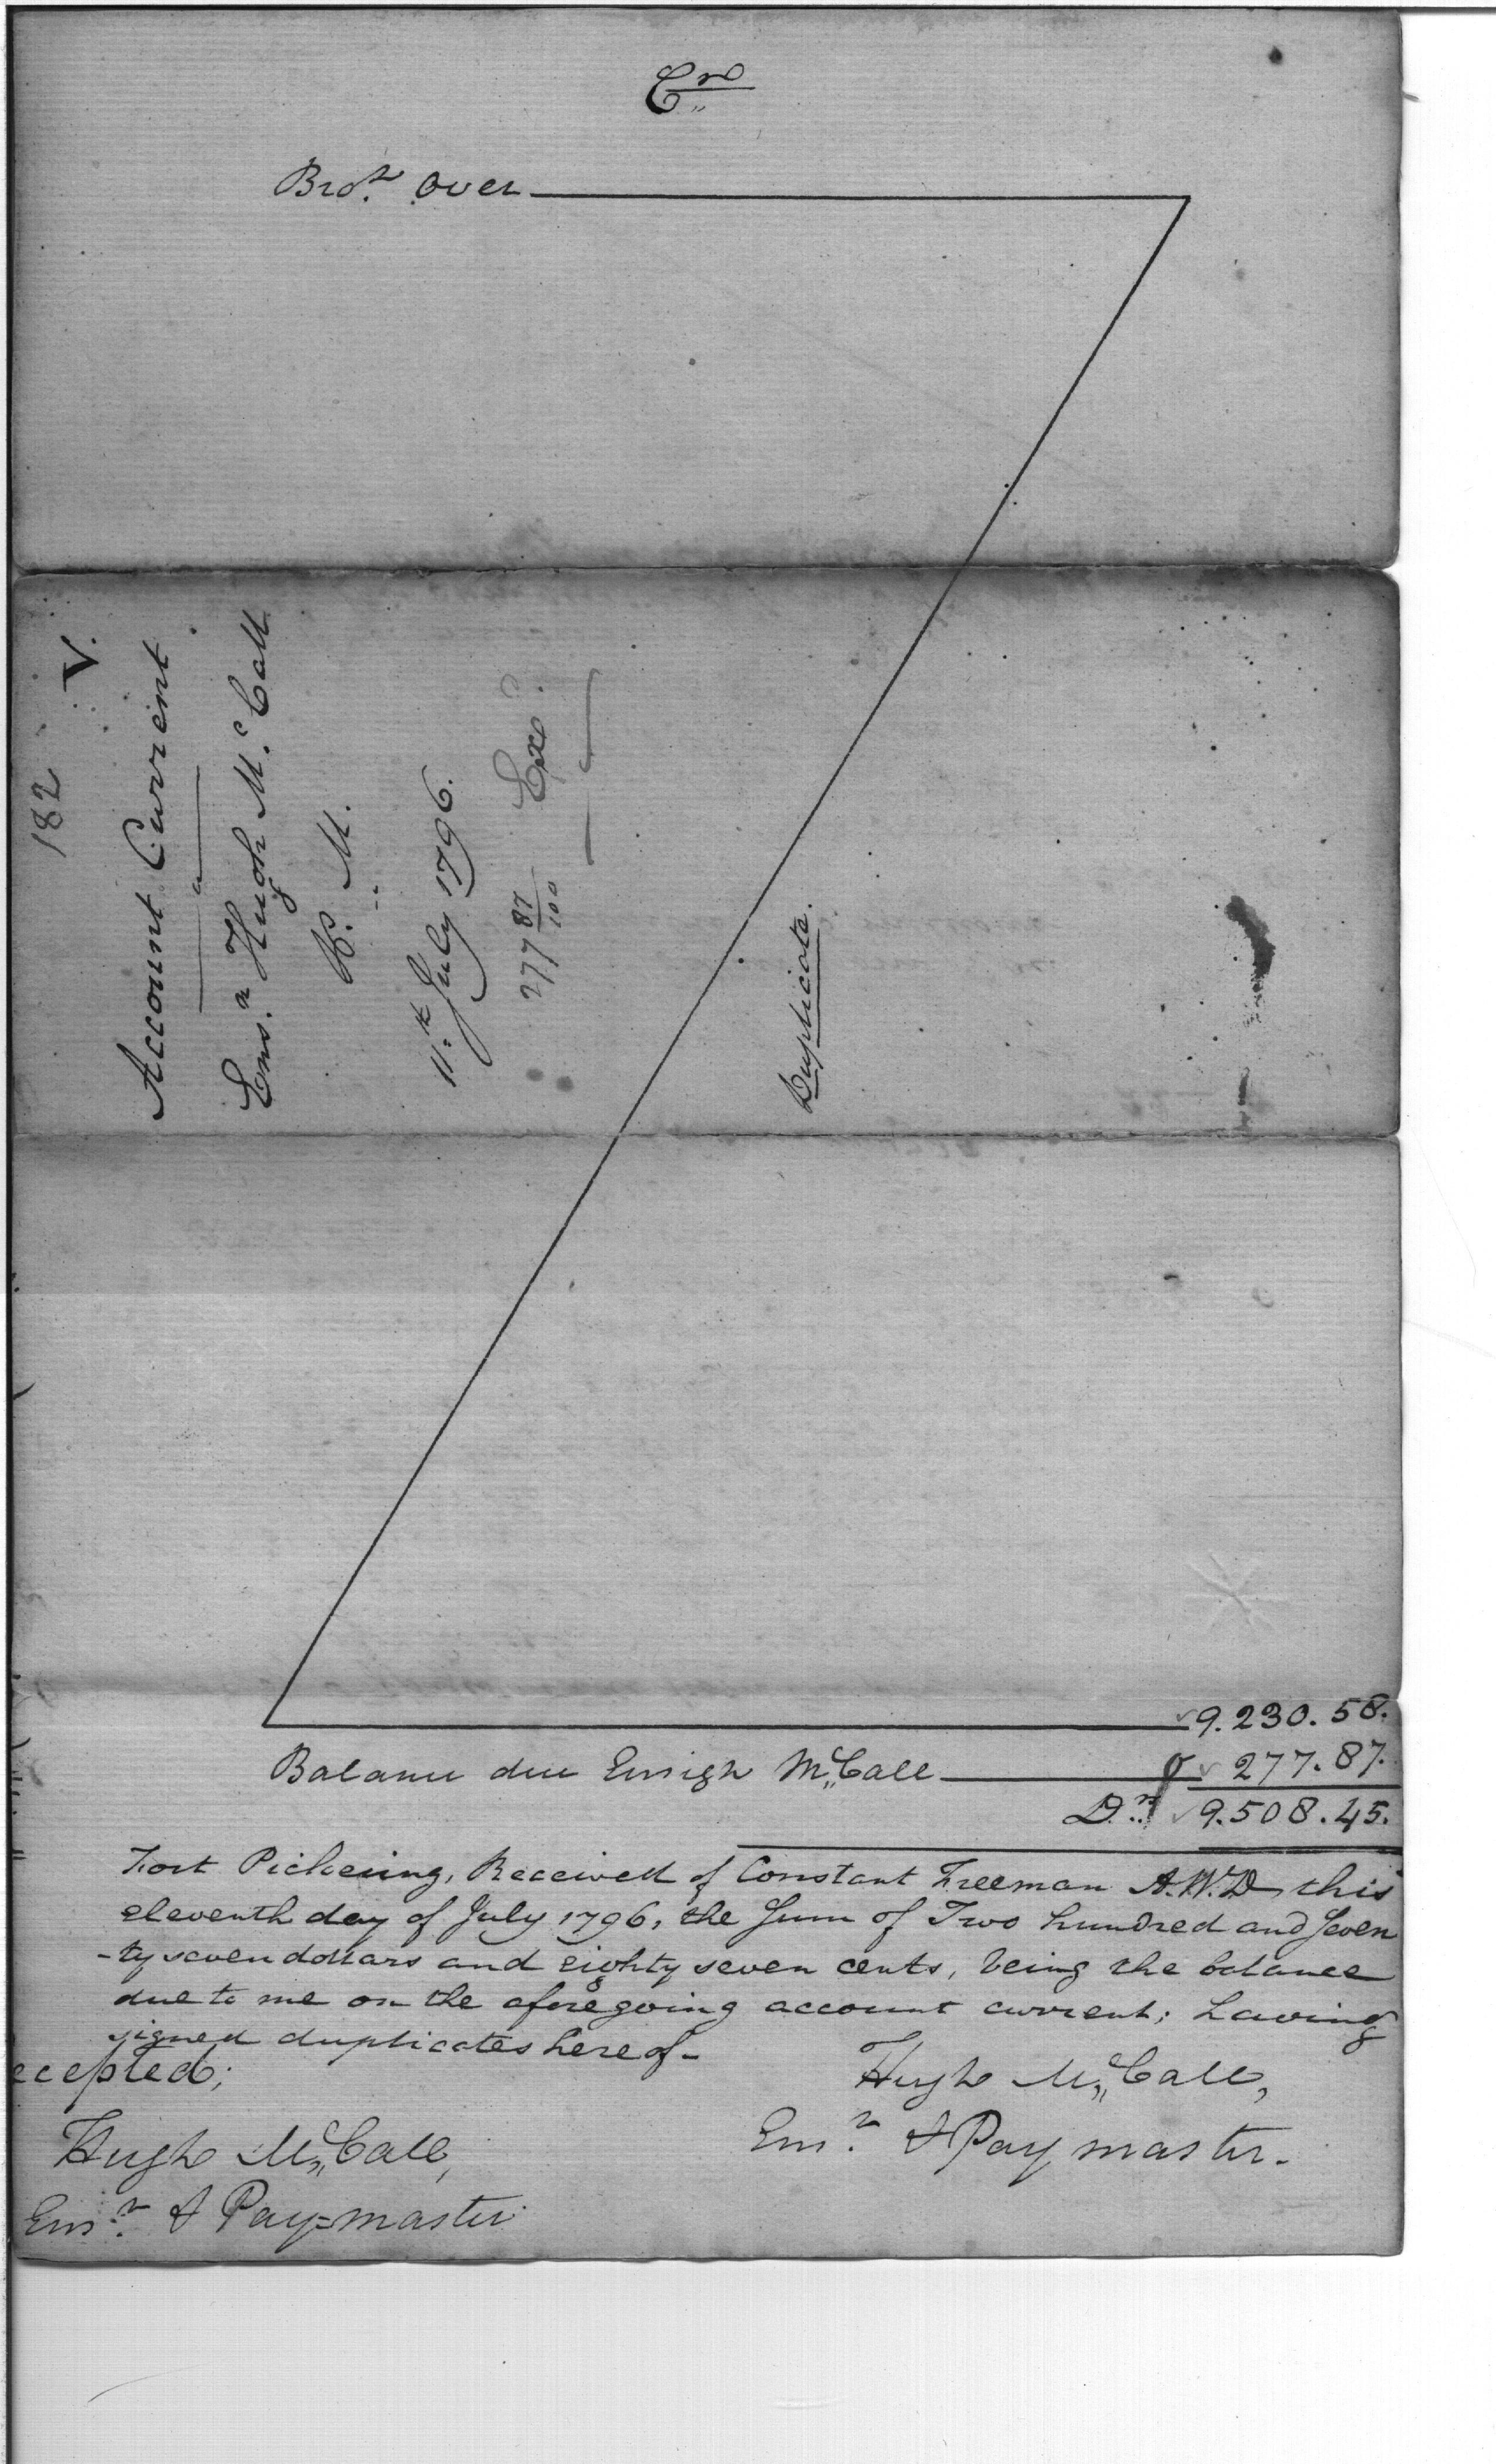 Cr
Brot. over
182 V.
Account Current
Ensn. Hugh McCall
P. M.
11th July 1796.
277 87/100 Exd.
Duplicate.
9.230.58.
Balance due Ensign McCall 277.87.
Drs 9.508.45.
Fort Pickering, Received of Constant Freeman A.W.D this
eleventh day of July 1796, the Sum of Two hundred and Seven
-ty seven dollars and eighty seven cents, being the balance
due to me on the aforegoing account current; having
signed duplicates hereof-
ecepted;
Hugh McCall,
Ensn. & Pay master.
Hugh McCall,
Ensn. & Pay=master